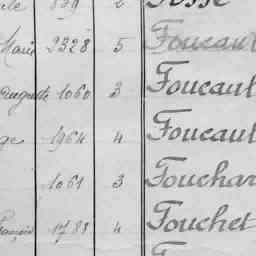 839 2 Fosse
Marie 2328 5 Foucaul
Auguste 1060 3 Foucaul
1964 4 Foucaul
1061 3 Fouchar
François 1783 4 Fouchet